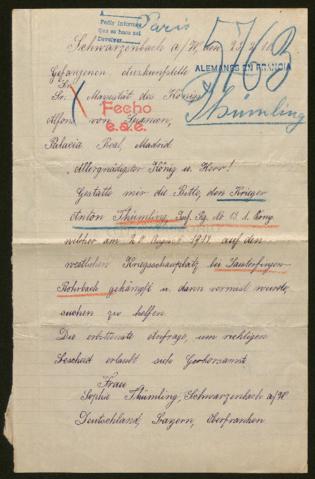 Pedir informes
que se hace mal
Devolver
Paris
Schwarzenbach a/W, den
ALEMANES EN FRANCIA
Gefangenen Auskunftstelle
Sr. Majestät des Königs
Fecho
e.a.e.
Thümling
Alfons von Spanien,
Palacia Real, Madrid
Allergnädigster König u. Herr!
Gestatte mir die Bitte, den Krieger
Anton Thümling, Inf. Rg. No 1. Komp.
welcher am 20 August 1914 auf dem
westlichen Kriegsschauplatz bei Saaraltorf
Rohrbach gekämpft u. dann vermisst wurde,
suchen zu helfen.
Die erbittenste Anfrage, um richtigen
Bescheid erlaubt sich Gerhorsamst
Frau
Sophie Thümling, Schwarzenbach a/W
Deutschland, Bayern, Oberfranken